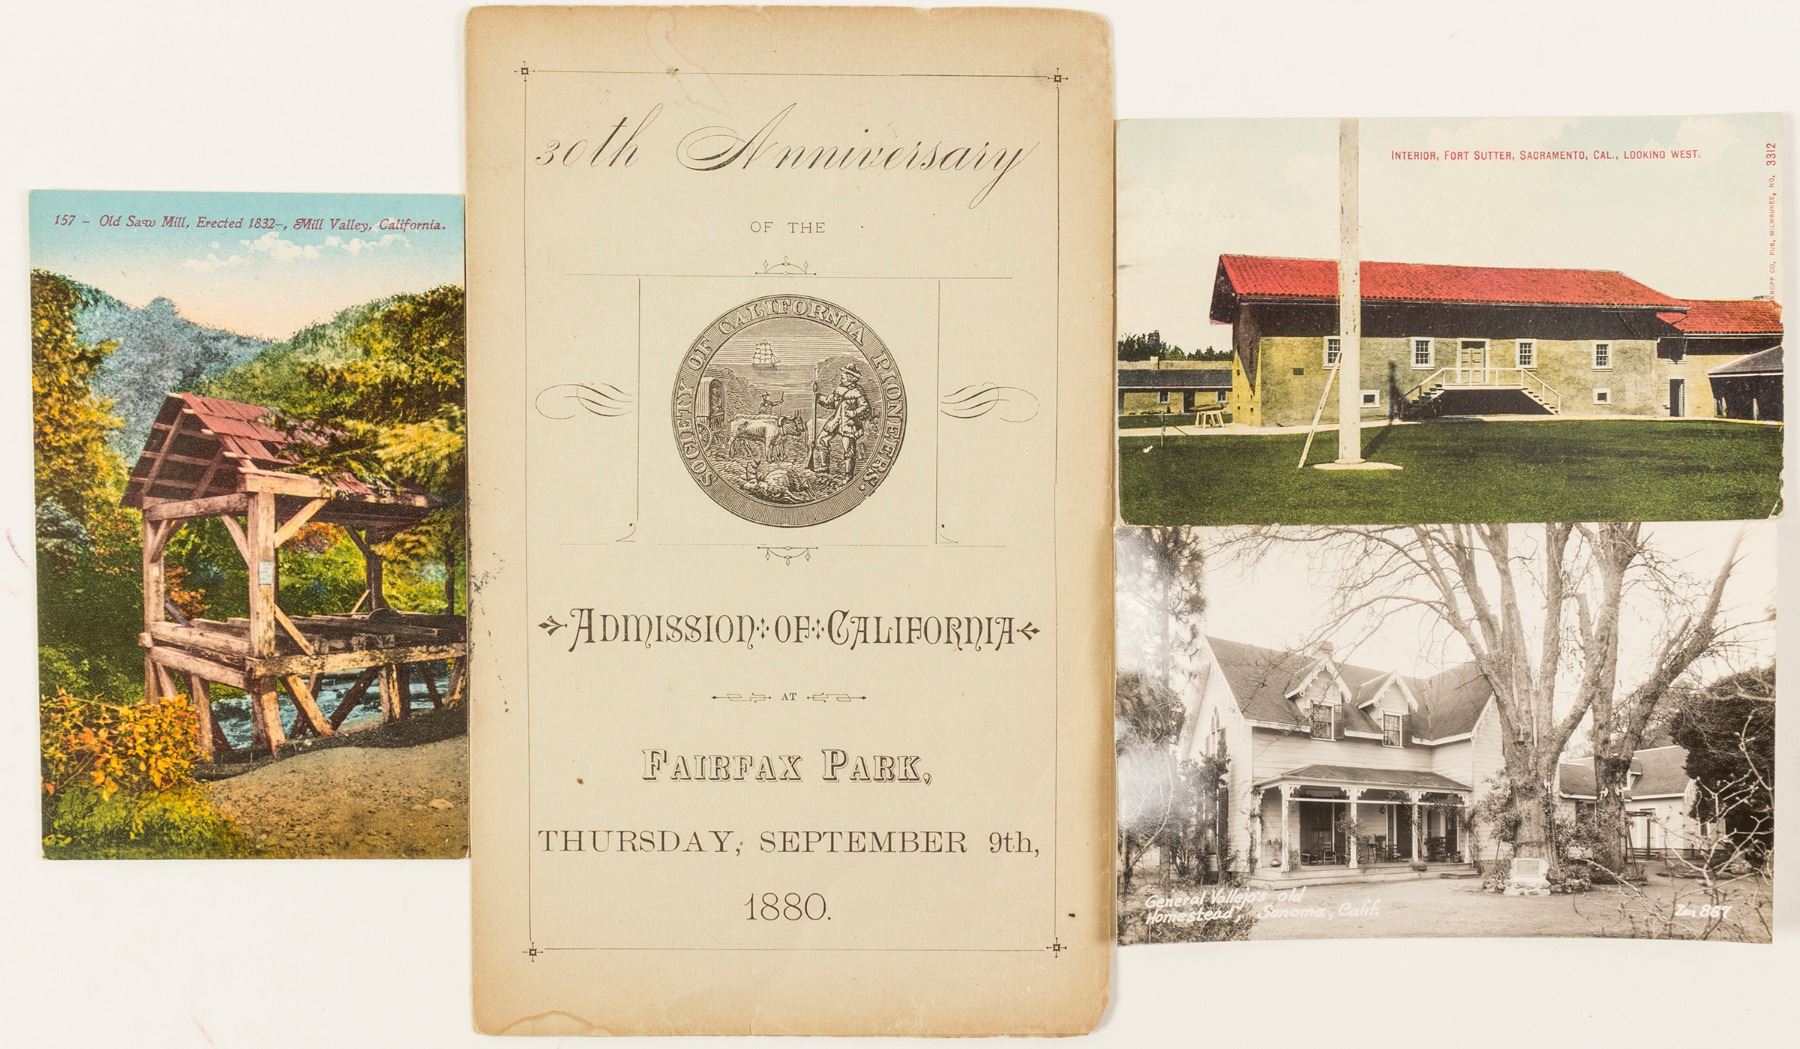 157 – Old Saw Mill, Erected 1832–, Mill Valley, California.
30th Anniversary
OF THE
SOCIETY OF CALIFORNIA PIONEERS.
ADMISSION OF CALIFORNIA
AT
FAIRFAX PARK,
THURSDAY, SEPTEMBER 9th,
1880.
INTERIOR, FORT SUTTER, SACRAMENTO, CAL., LOOKING WEST.
KROPP CO., PUB. MILWAUKEE, NO. 3312
General Vallejo's old
Homestead, Sonoma, Calif.
Zan 867